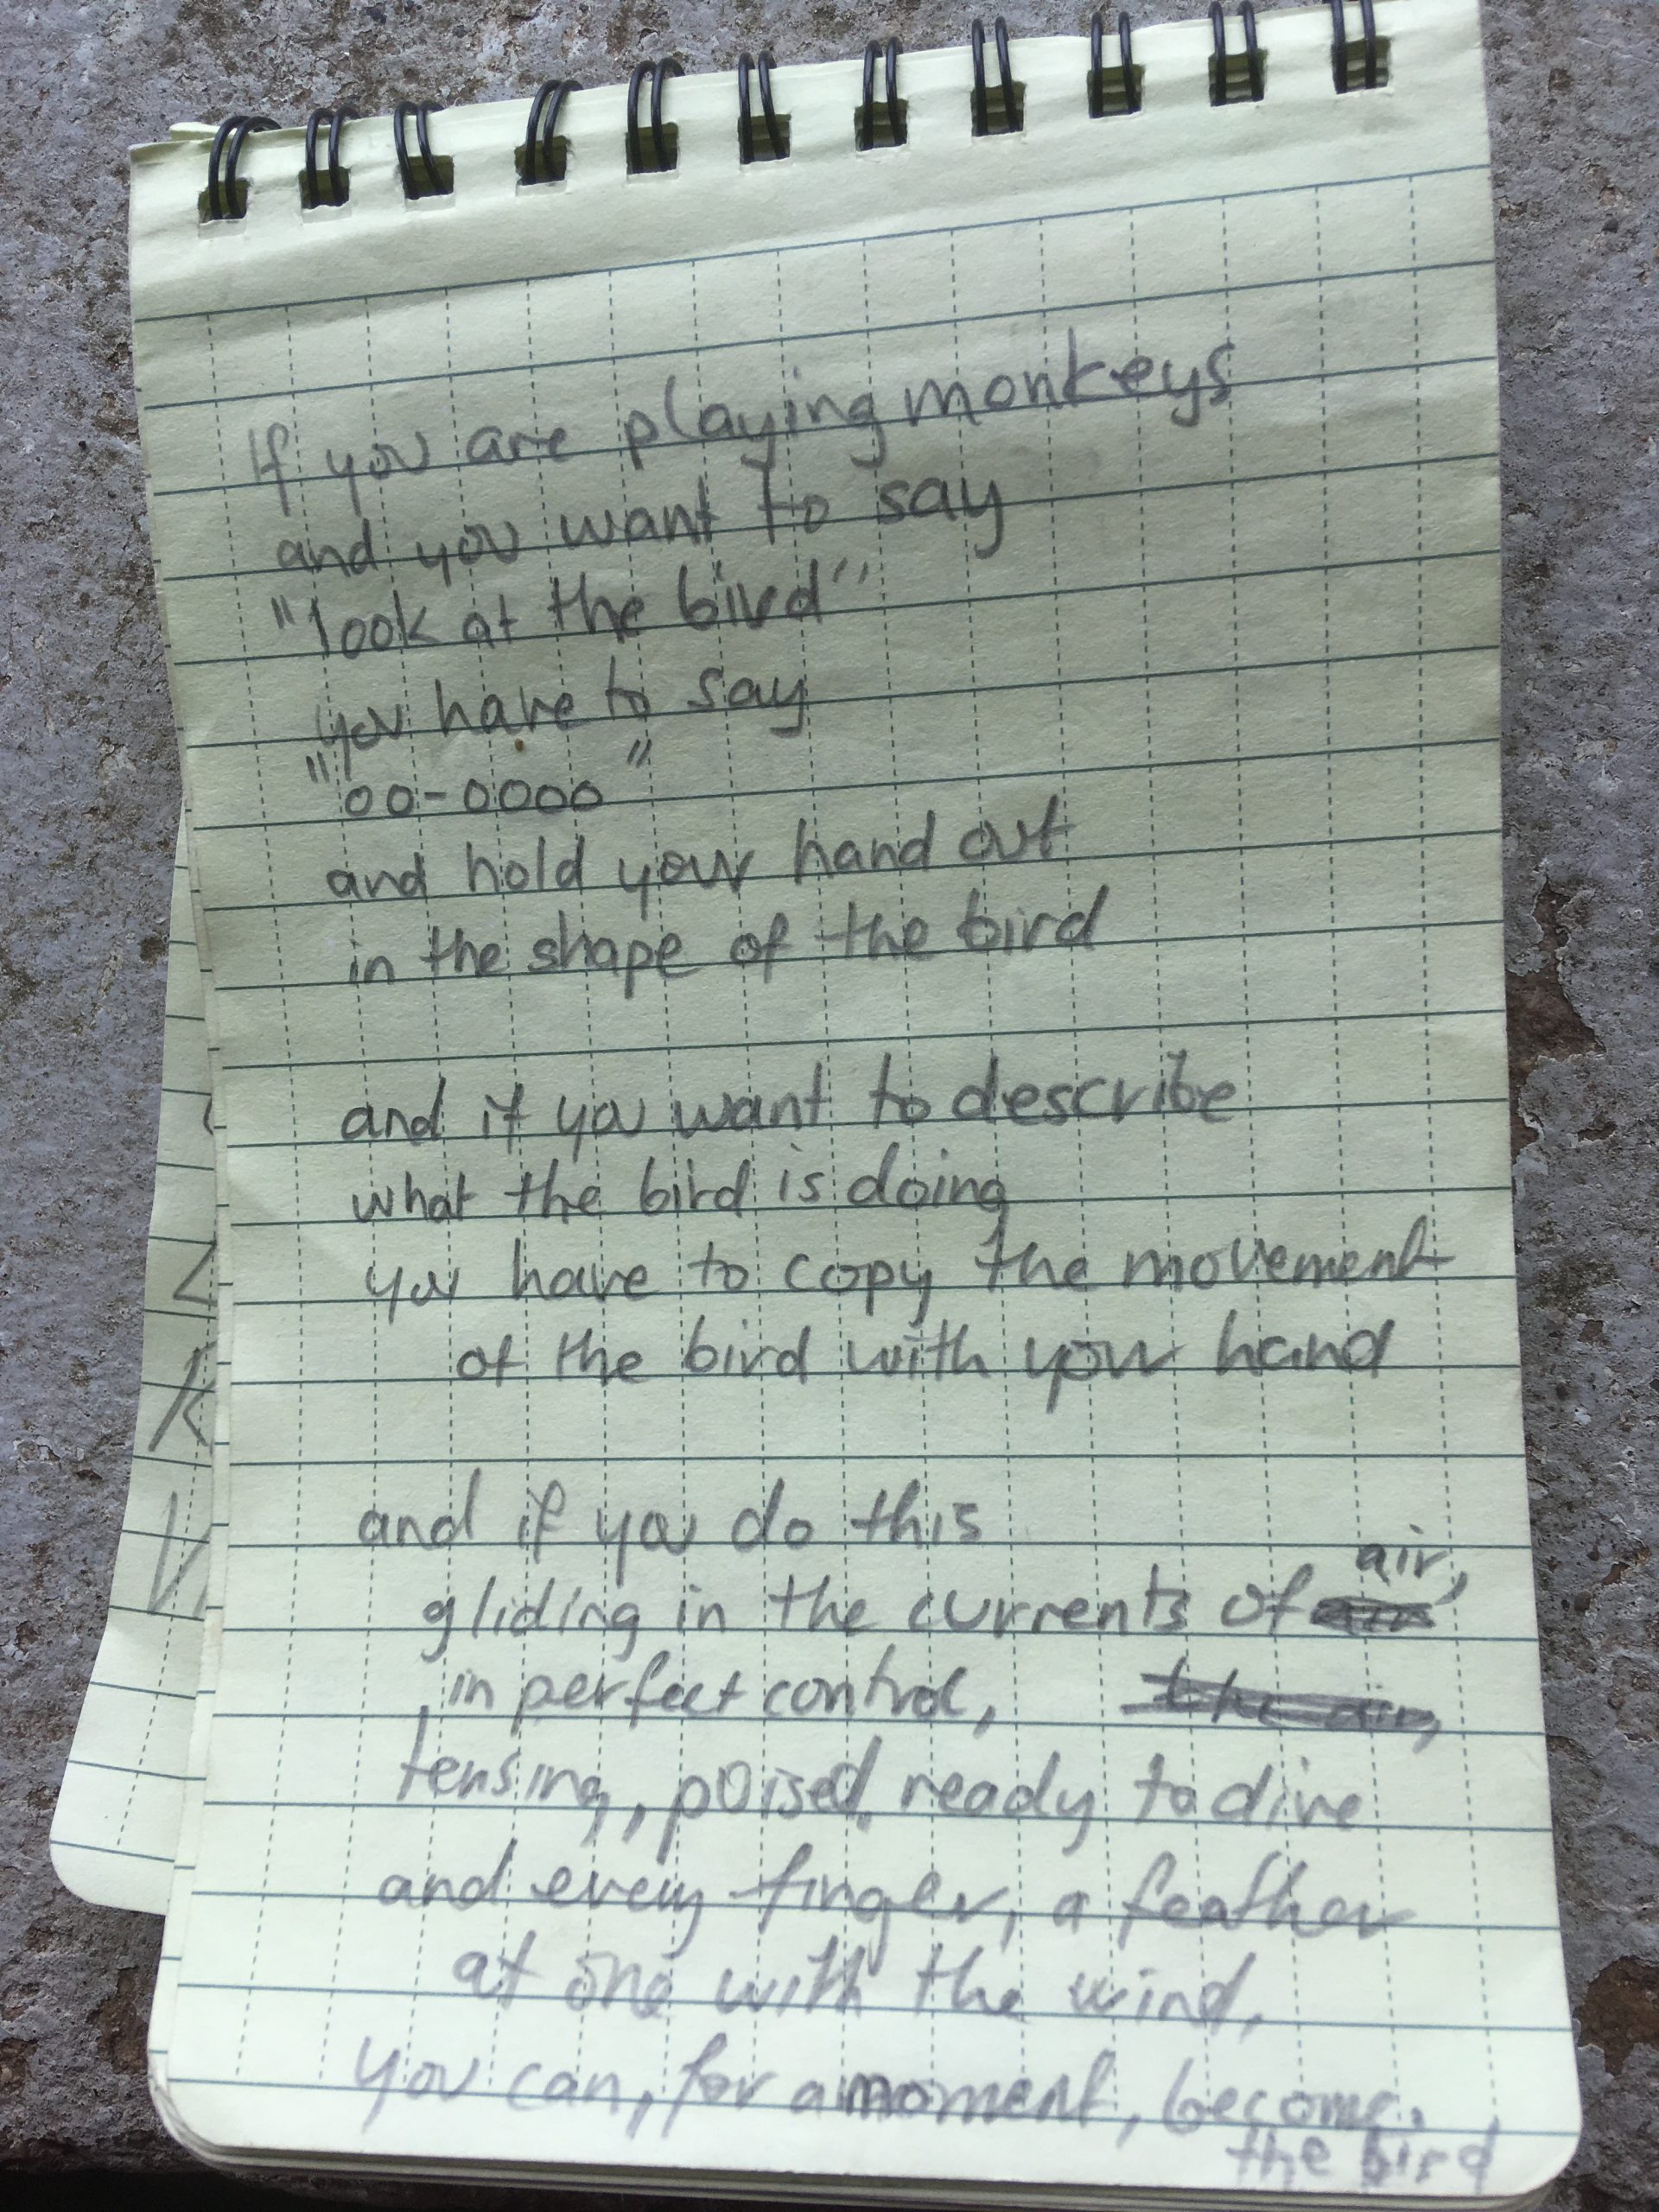 If you are playing monkeys
and you want to say
"look at the bird"
you have to say
"oo-oooo"
and hold your hand out
in the shape of the bird
and if you want to describe
what the bird is doing
you have to copy the movement
of the bird with your hand
and if you do this
gliding in the currents of air,
in perfect control,
tensing, poised, ready to dive
and every finger, a feather
at one with the wind,
you can, for a moment, become
the bird